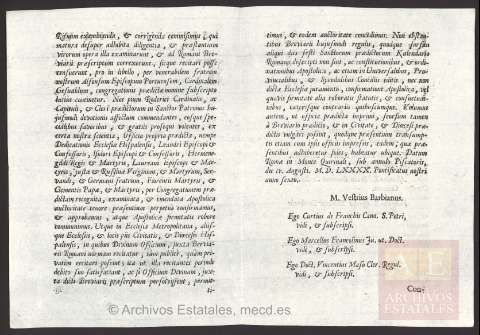 Rituum expendenda, & corrigenda commisimus, qui
matura desuper adhibita diligentia, & præstantium
Virorum opera illa examinarunt, & ad Romani Bre-
viarij præscriptum correxerunt, sicque recitari posse
censuerunt, pro ut libello, per venerabilem fratrem
nostrum Alfonsum Episcopum Portuensem, Cardinalem
Gesualdum, congregationis prædictæ nomine subscripto
latius continetur. Nos pium Roderici Cardinalis, ac
Capituli, & Cleri prædictorum in Sanctos Patronos hu-
iusmodi devotionis affectum commendantes, eosque spe-
cialibus favoribus, & gratijs prosequi volentes, ex
certa nostra scientia, Officia propria prædicta, nempe
Dedicationis Ecclesiæ Hispalensis, Leandri Episcopi &
Confessoris, Isidori Episcopi & Confessoris, Hermene-
gildi Regis & Martyris, Laureani Episcopi & Mar-
tyris, Iustæ & Rufinæ Virginum, & Martyrum, Ser-
vandi, & Germani fratrum, Florentij Martyris, &
Clementis Papæ, & Martyris, per Congregationem præ-
dictam recognita, examinata, & emendata Apostolica
auctoritate tenore præsentium perpetuo confirmamus,
& approbamus, atque Apostolicæ firmitatis robore
communimus. Utque in Ecclesia Metropolitana, alijs-
que Ecclesijs, & locis pijs Civitatis, & Diœcesis Hispa-
lensis, in quibus Divinum Officium, iuxta Brevia-
rij Romani normam recitatur, tam publicè, quam pri-
vatim recitari possint, ita ut illa recitantes perinde
debito suo satisfaciant, ac si Officium Divinum, iuxta
dicti Breviarij præscriptum persolvissent, permit-
ti-
timus, & eadem auctoritate concedimus. Non obstan-
tibus Breviarij huiusmodi regulis, quodque forsan
aliqui dies festi Sanctorum prædictorum Kalendario
Romano descripti non sint, ac constitutionibus, & ordi-
nationibus Apostolicis, ac etiam in Universalibus, Pro-
vincialibus, & Synodalibus Concilijs editis, nec non
dictæ Ecclesiæ iuramento, confirmatione Apostolica, vel
quavis firmitate alia roboratis statutis, & consuetudi-
nibus, cæterisque contrarijs quibuscunque. Volumus
autem, ut officia prædicta imprimi, seorsum tamen
à Breviario prædicto, & in Civitate, & Diœcesi præ-
dictis vulgari possint, quodque præsentium transump-
tis etiam cum ipsis officijs impressis, eadem, quæ præ-
sentibus adhiberetur fides, habeatur ubique. Datum
Romæ in Monte Quirinali, sub annulo Piscatoris,
die vi. Augusti. M. D. LXXXX. Pontificatus nostri
anno sexto.
M. Vestrius Barbianus.
Ego Curtius de Franchis Can. S. Petri,
vidi, & subscripsi.
Ego Marcellus Framolinus Iu. ut. Doct.
vidi, & subscripsi.
Ego Doct. Vincentius Masa Cler. Regul.
vidi, & subscripsi.
Con-
ARCHIVOS
ESTATALES
© Archivos Estatales, mecd.es